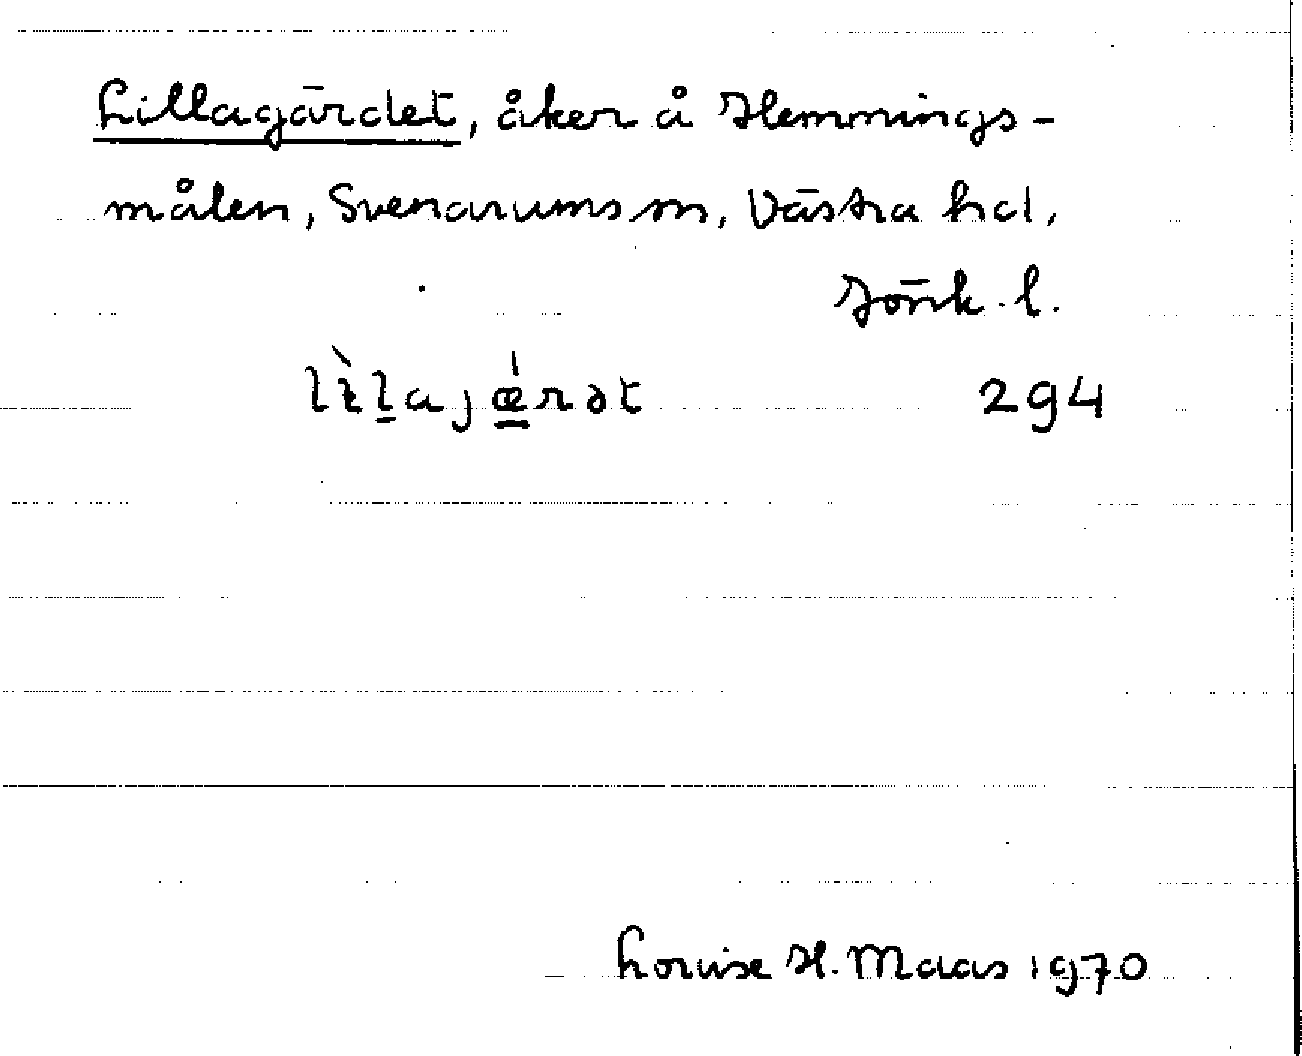 Lillagärdet, åker å Hemmings-
målen, Svenarums sn, Västra hd,
Jönk. l.
lìl̲ajǽ̲rət 294
Louise H. Maas 1970